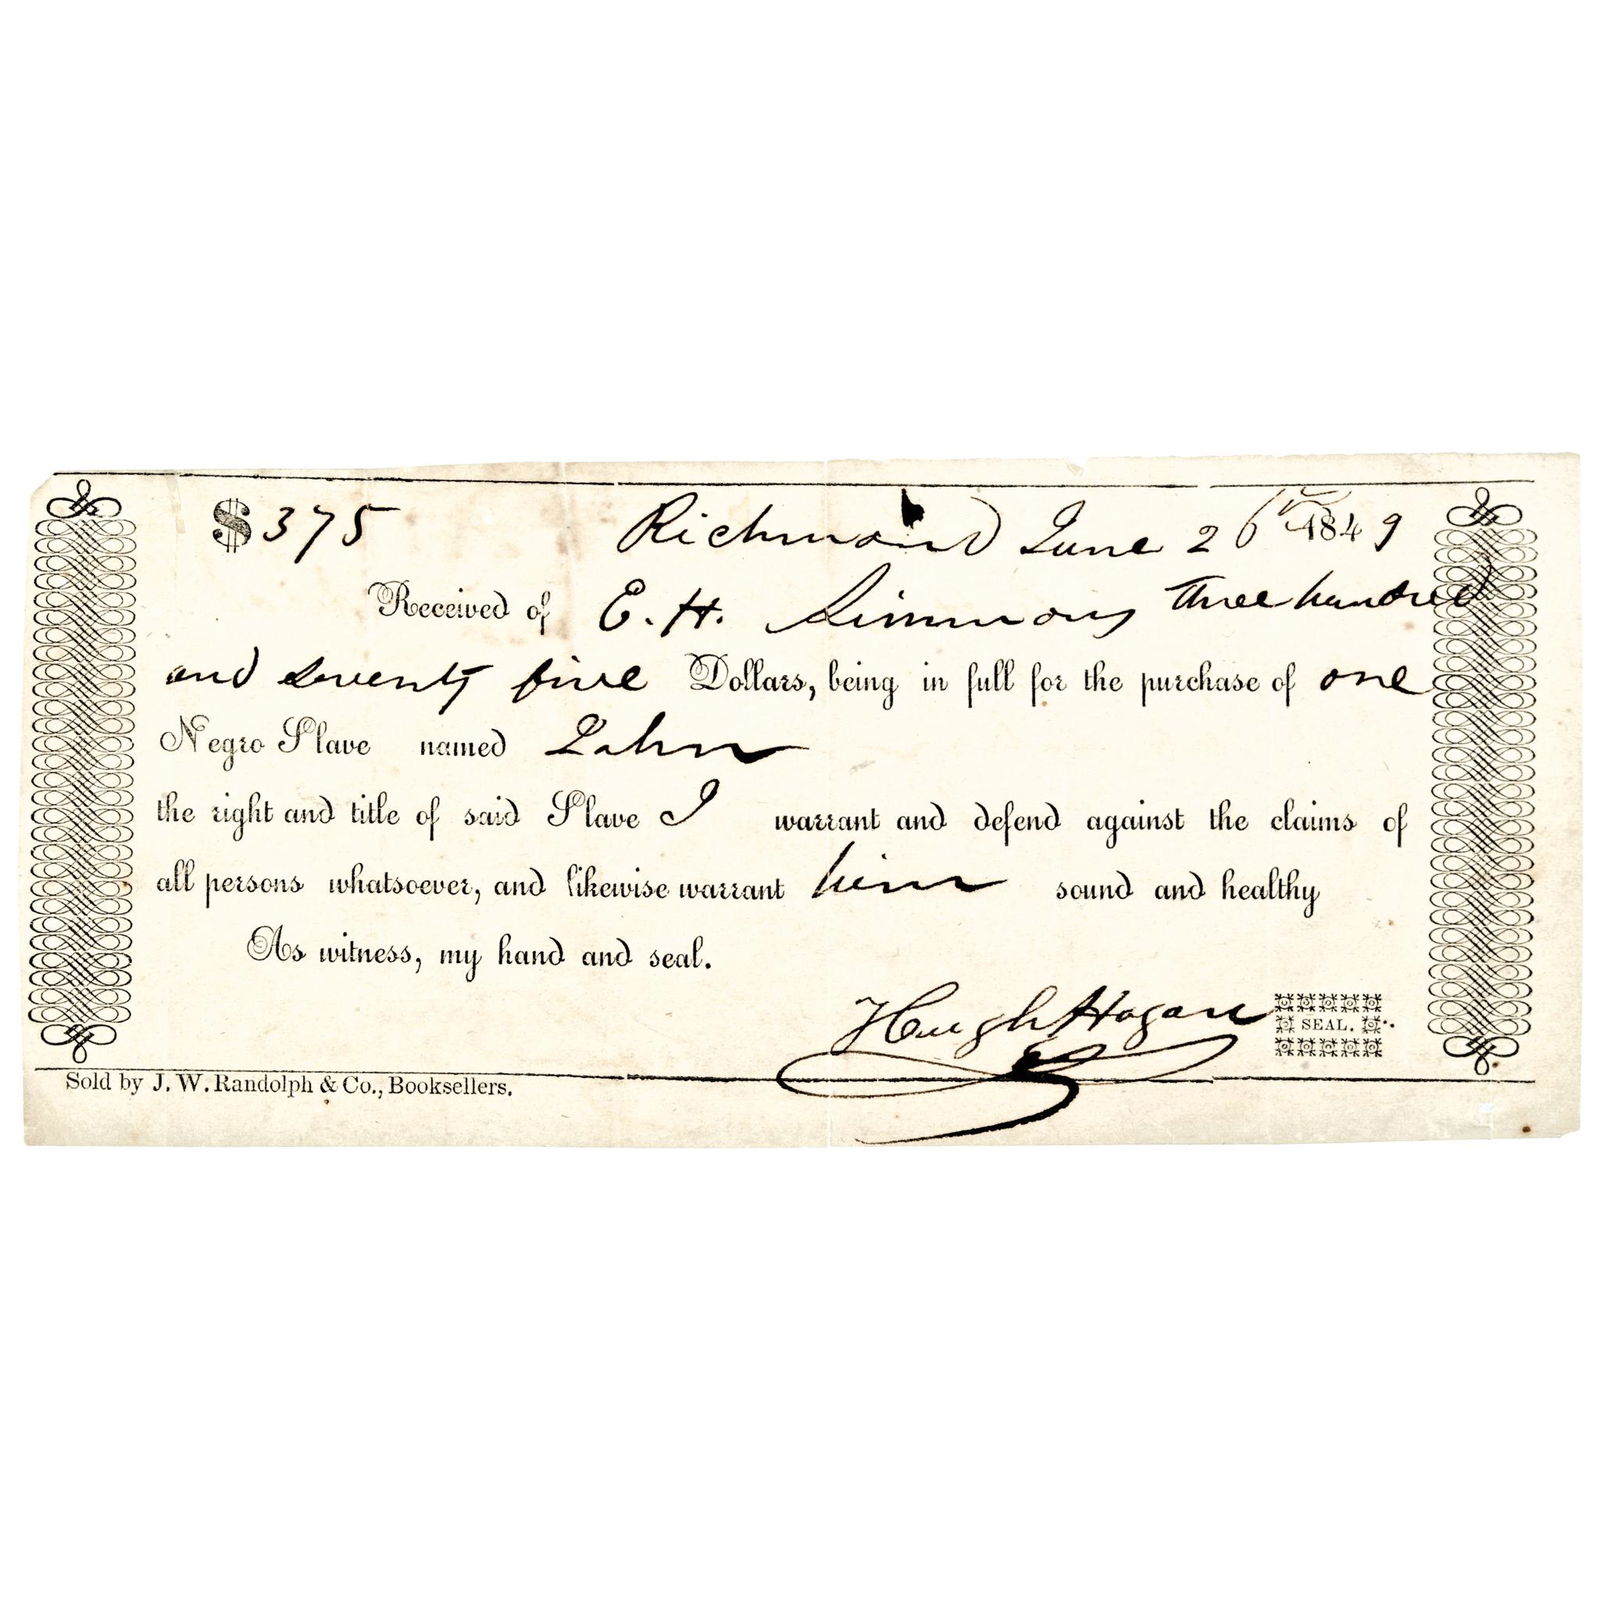 $375 Richmond June 26th 1849
Received of E. H. Simmons three hundred
and seventy five Dollars, being in full for the purchase of one
Negro Slave named John
the right and title of said Slave I warrant and defend against the claims of
all persons whatsoever, and likewise warrant him sound and healthy
As witness, my hand and seal.
Hugh Hogan SEAL.
Sold by J. W. Randolph & Co., Booksellers.